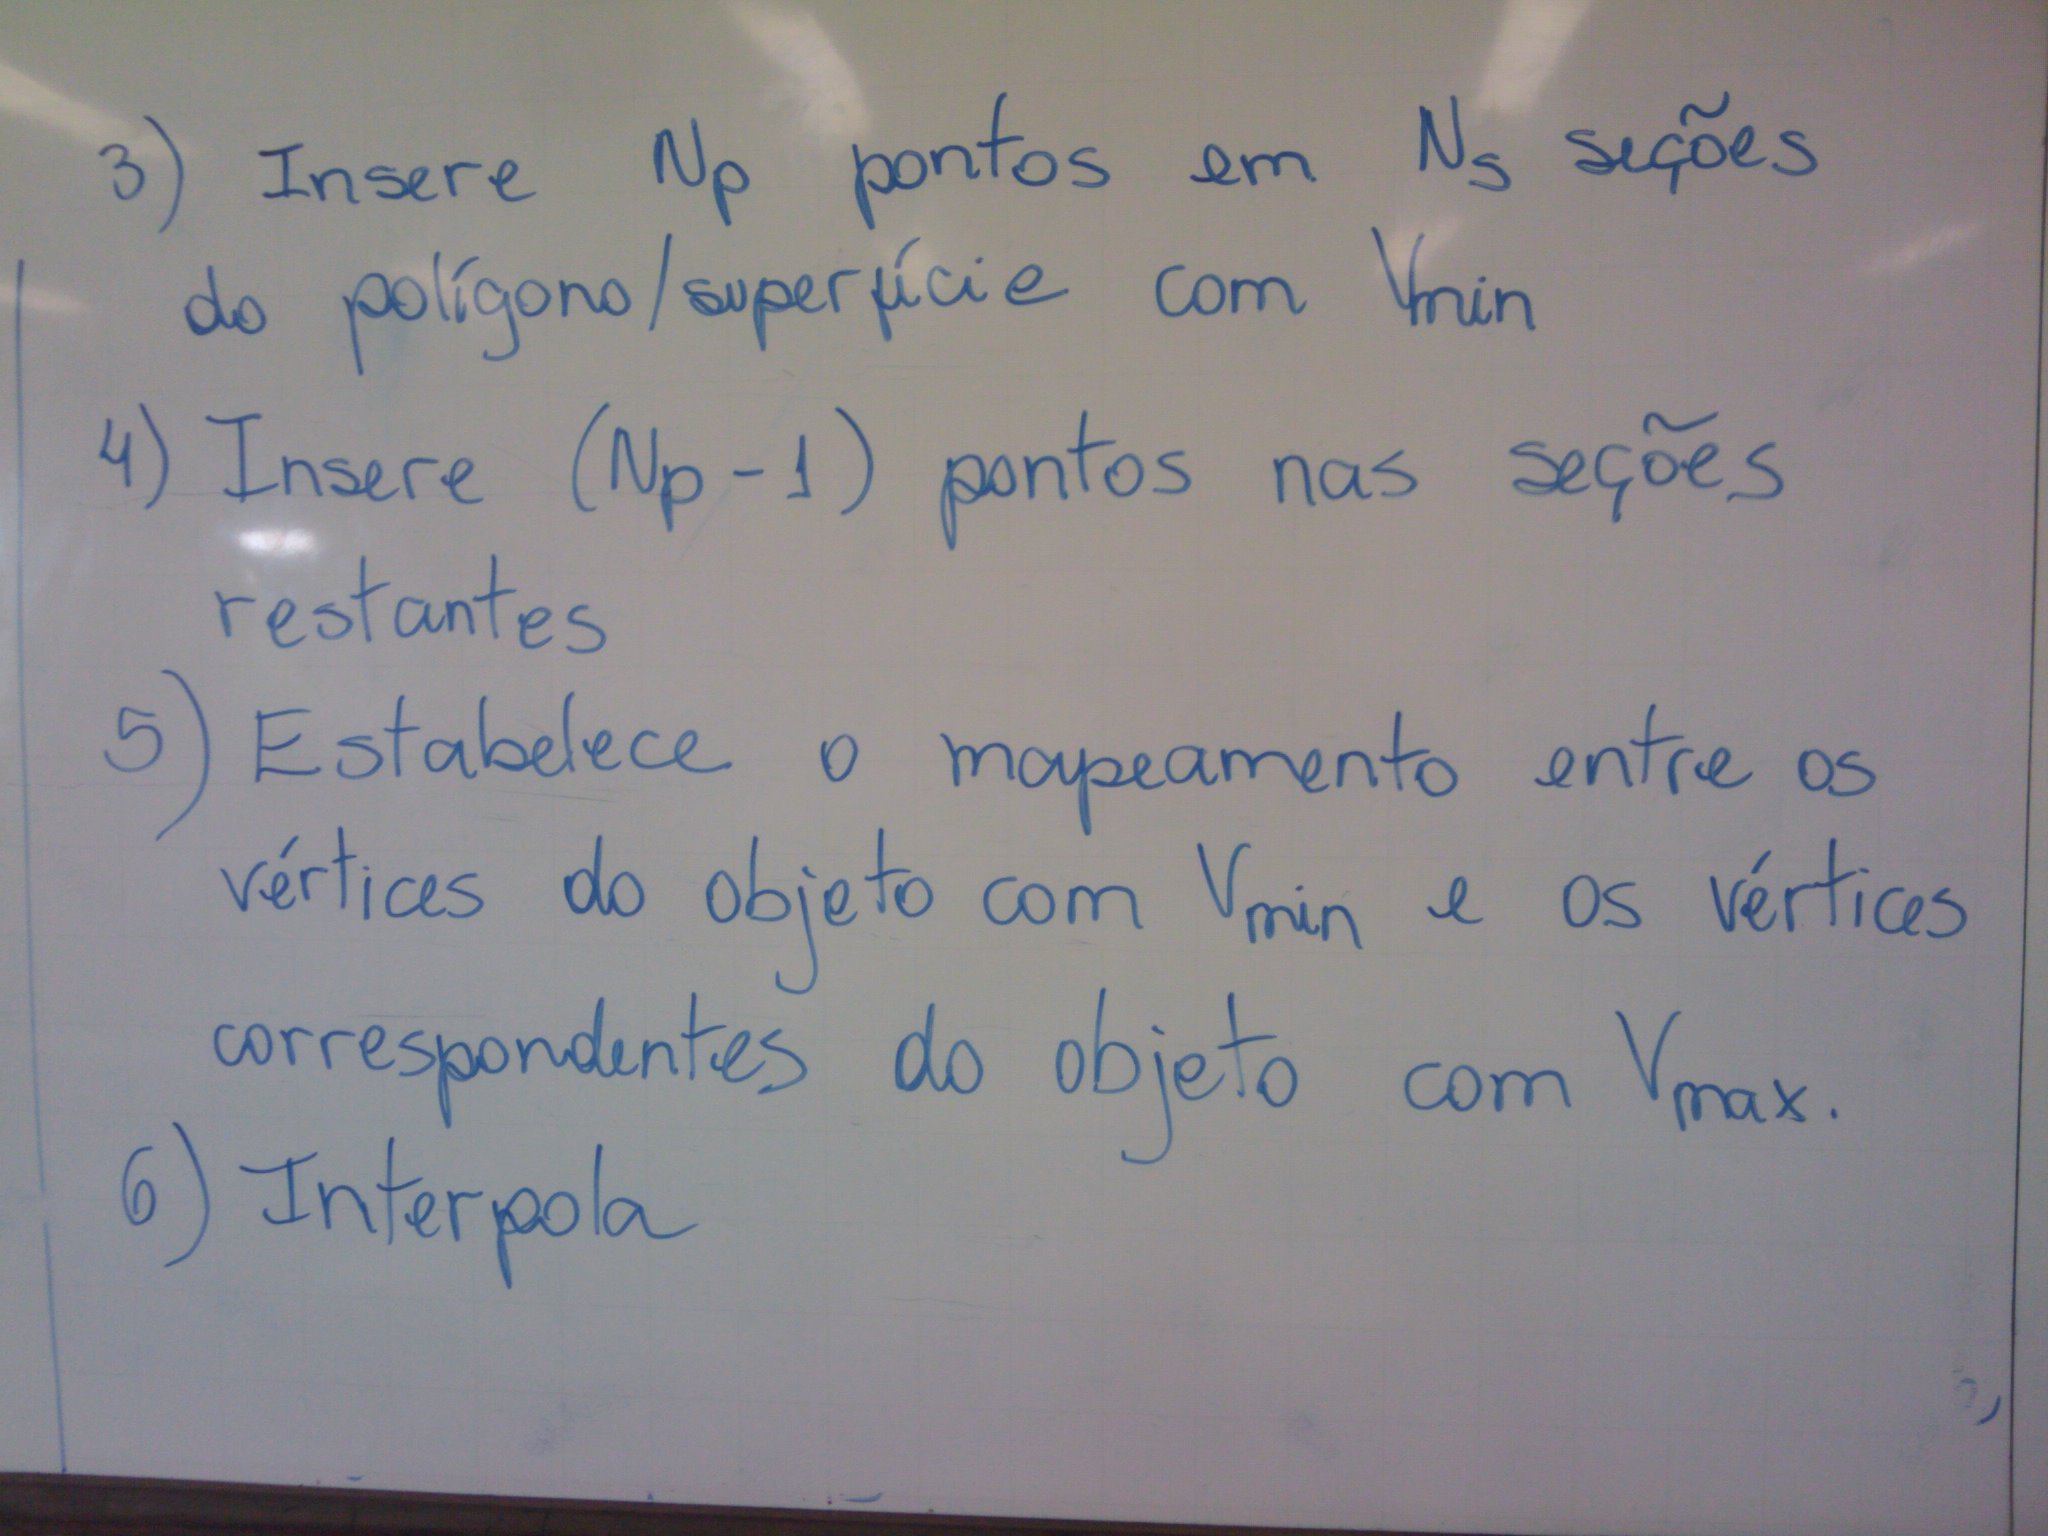 3) Insere Np pontos em Ns seções
do polígono/superfície com Vmin
4) Insere (Np-1) pontos nas seções
restantes
5) Estabelece o mapeamento entre os
vértices do objeto com Vmin e os vértices
correspondentes do objeto com Vmax.
6) Interpola